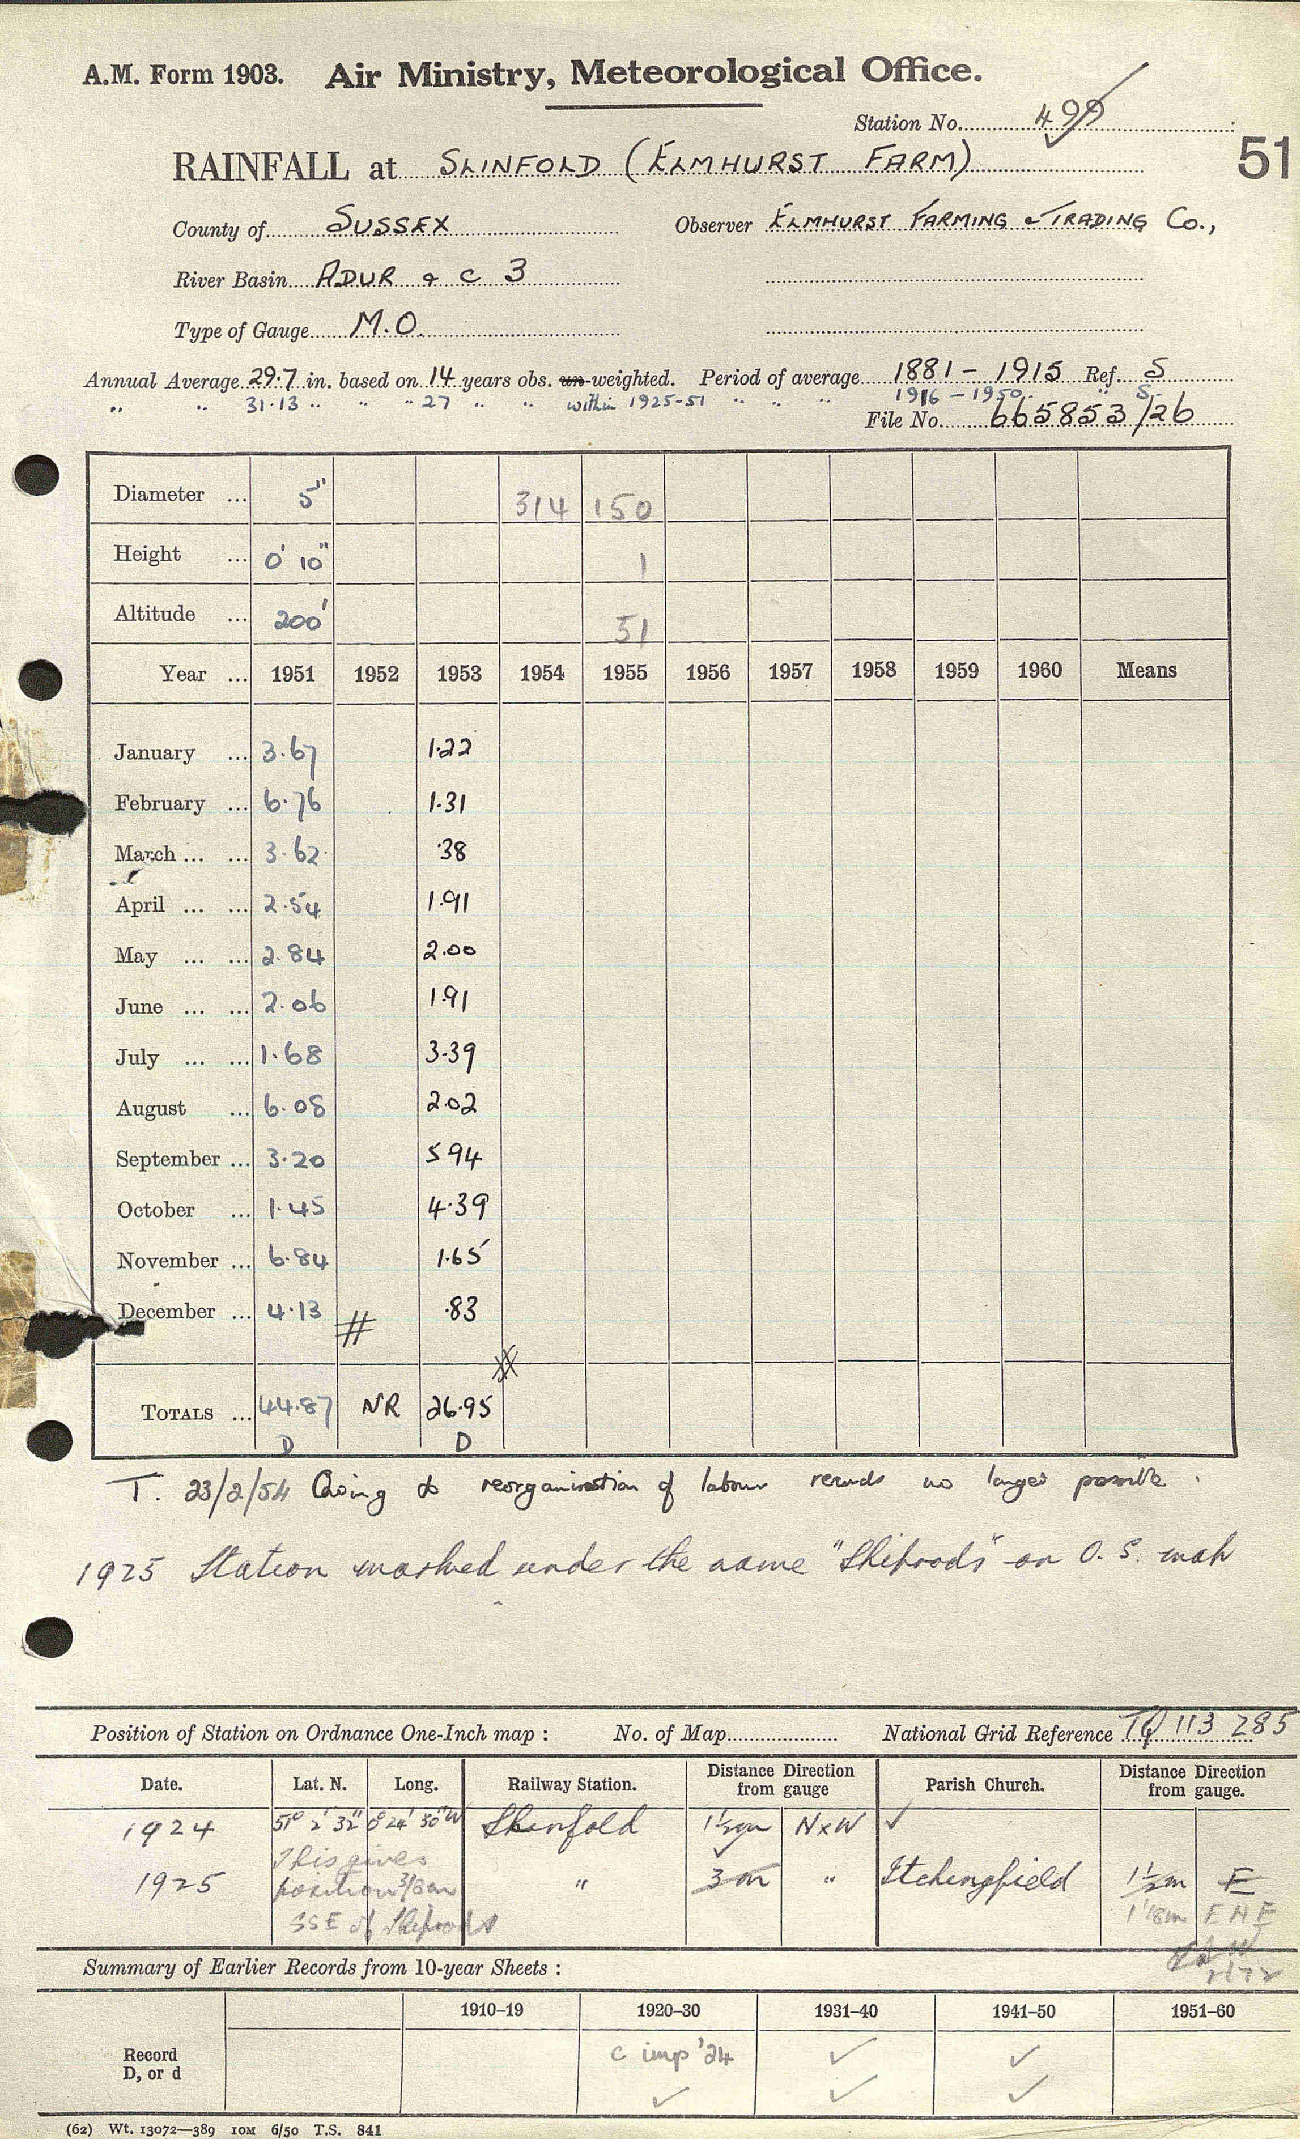 A.M. Form 1903. Air Ministry, Meteorological Office.
Station No. 499
51
RAINFALL at SLINFOLD (ELMHURST FARM)
County of SUSSEX Observer ELMHURST FARMING & TRADING Co.,
River Basin ADUR & c 3
Type of Gauge M.O.
Annual Average 29.7 in. based on 14 years obs. un-weighted. Period of average 1881 - 1915 Ref. S
" " 31.13 " " " 27 " " within 1925-51 " " " 1916 - 1950 " S
File No. 665853/26
Diameter ... 5" 314 150
Height ... 0' 10" 1
Altitude ... 200' 51
Year ... 1951 1952 1953 1954 1955 1956 1957 1958 1959 1960 Means
January ... 3.67 1.22
February ... 6.76 1.31
March ... ... 3.62 .38
April ... ... 2.54 1.91
May ... ... 2.84 2.00
June ... ... 2.06 1.91
July ... ... 1.68 3.39
August ... 6.08 2.02
September ... 3.20 5 94
October ... 1.45 4.39
November ... 6.84 1.65
December ... 4.13 # .83
TOTALS ... 44.87 NR 26.95
D D
T. 23/2/54 Owing to reorganisation of labour records no longer possible.
1925 Station marked under the name "Shiprods" on O.S. map
Position of Station on Ordnance One-Inch map : No. of Map National Grid Reference TQ 113 285
Date. Lat. N. Long. Railway Station. Distance Direction from gauge Parish Church. Distance Direction from gauge.
1924 51° 2' 32" 0° 24' 50" W Slinfold 1½m NxW ✓
This gives
1925 position 3/8m " 3m " Itchingfield 1½m E
SSE of Shiprods 1 1/8m ENE
2/72
Summary of Earlier Records from 10-year Sheets :
1910–19 1920–30 1931–40 1941–50 1951–60
Record c imp '24 ✓ ✓
D, or d ✓ ✓ ✓
(62) Wt. 13072—389 10M 6/50 T.S. 841